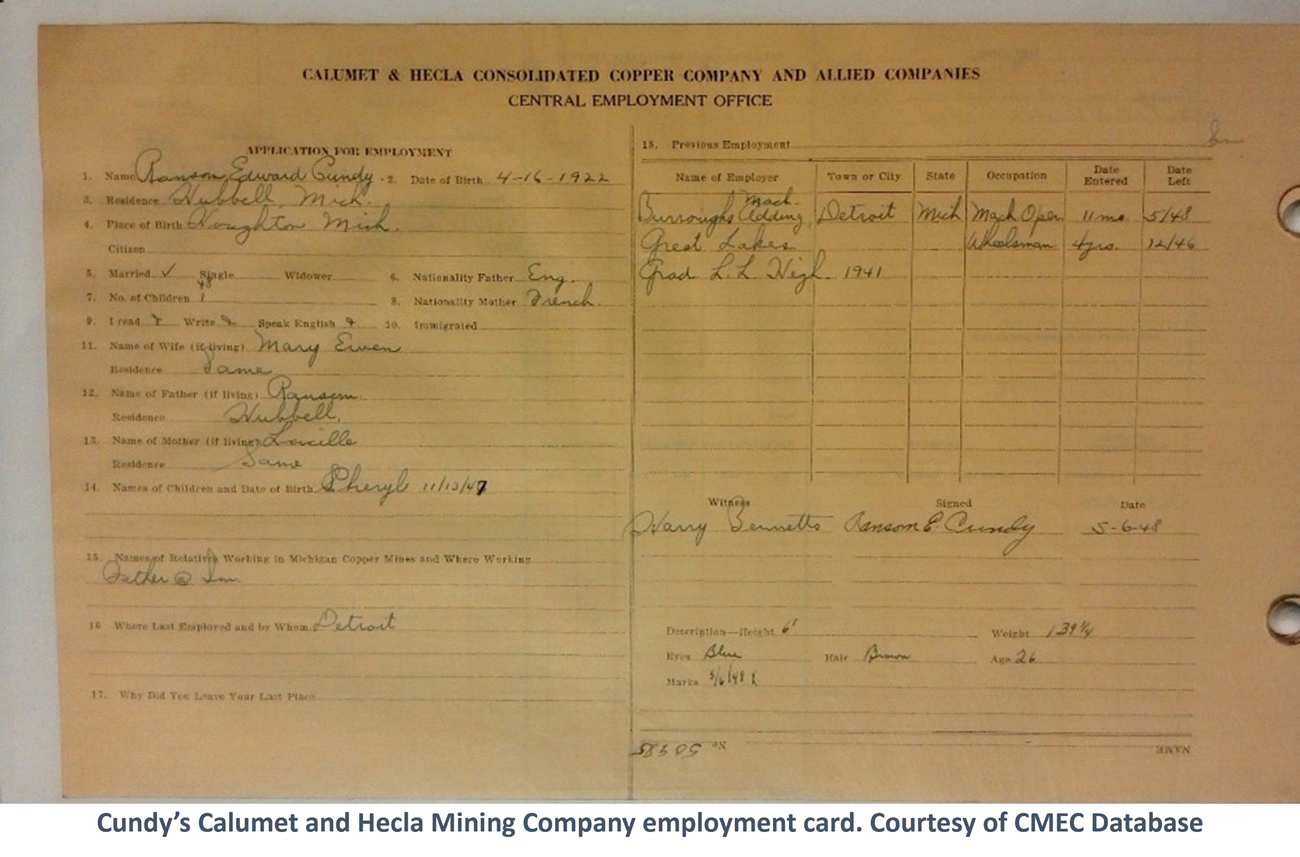 CALUMET & HECLA CONSOLIDATED COPPER COMPANY AND ALLIED COMPANIES
CENTRAL EMPLOYMENT OFFICE
APPLICATION FOR EMPLOYMENT
1. Name Ransom Edward Cundy 2. Date of Birth 4-16-1922
3. Residence Hubbell, Mich.
4. Place of Birth Houghton Mich.
Citizen
5. Married ✓ Single Widower 6. Nationality Father Eng.
48
7. No. of Children 1 8. Nationality Mother French
9. I read Write Speak English 10. Immigrated
11. Name of Wife (if living) Mary Ewen
Residence Same
12. Name of Father (if living) Ransom
Residence Hubbell,
13. Name of Mother (if living) Loucille
Residence Same
14. Names of Children and Date of Birth Cheryl 11/13/47
15. Names of Relatives Working in Michigan Copper Mines and Where Working
Father @ Sm.
16 Where Last Employed and by Whom Detroit
17. Why Did You Leave Your Last Place
18. Previous Employment
Sm
Name of Employer Town or City State Occupation Date Entered Date Left
Burroughs Adding Mach. Detroit Mich Mach Oper. 11 mo. 5/48
Great Lakes Wheelsman 4 yrs. 12/46
Grad L. L. High 1941
Witness Signed Date
Harry Bennetts Ransom E Cundy 5-6-48
Description—Height 6' Weight 139 1/4
Eyes Blue Hair Brown Age 26
Marks 5/6/48
NAME No. 50485
Cundy's Calumet and Hecla Mining Company employment card. Courtesy of CMEC Database